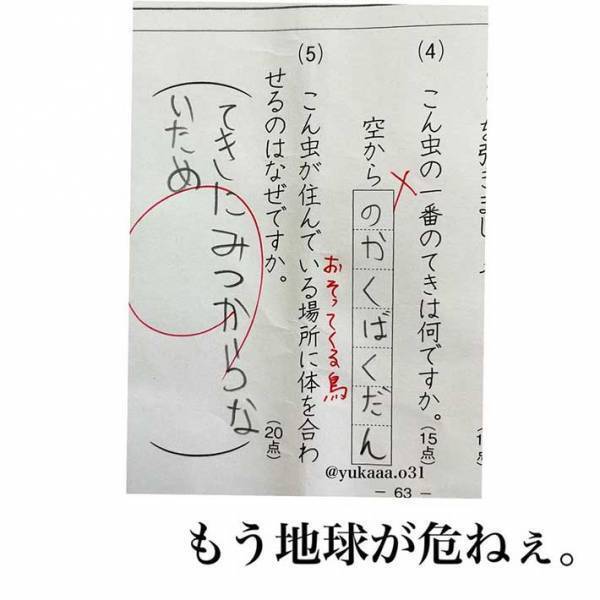 (4) こん虫の一番のてきは何ですか。(15点)
空から
のかくばくだん
おそってくる鳥
(5) こん虫が住んでいる場所に体を合わ
せるのはなぜですか。(20点)
てきにみつからな
いため
@yukaaa.o31
- 63 -
もう地球が危ねぇ。